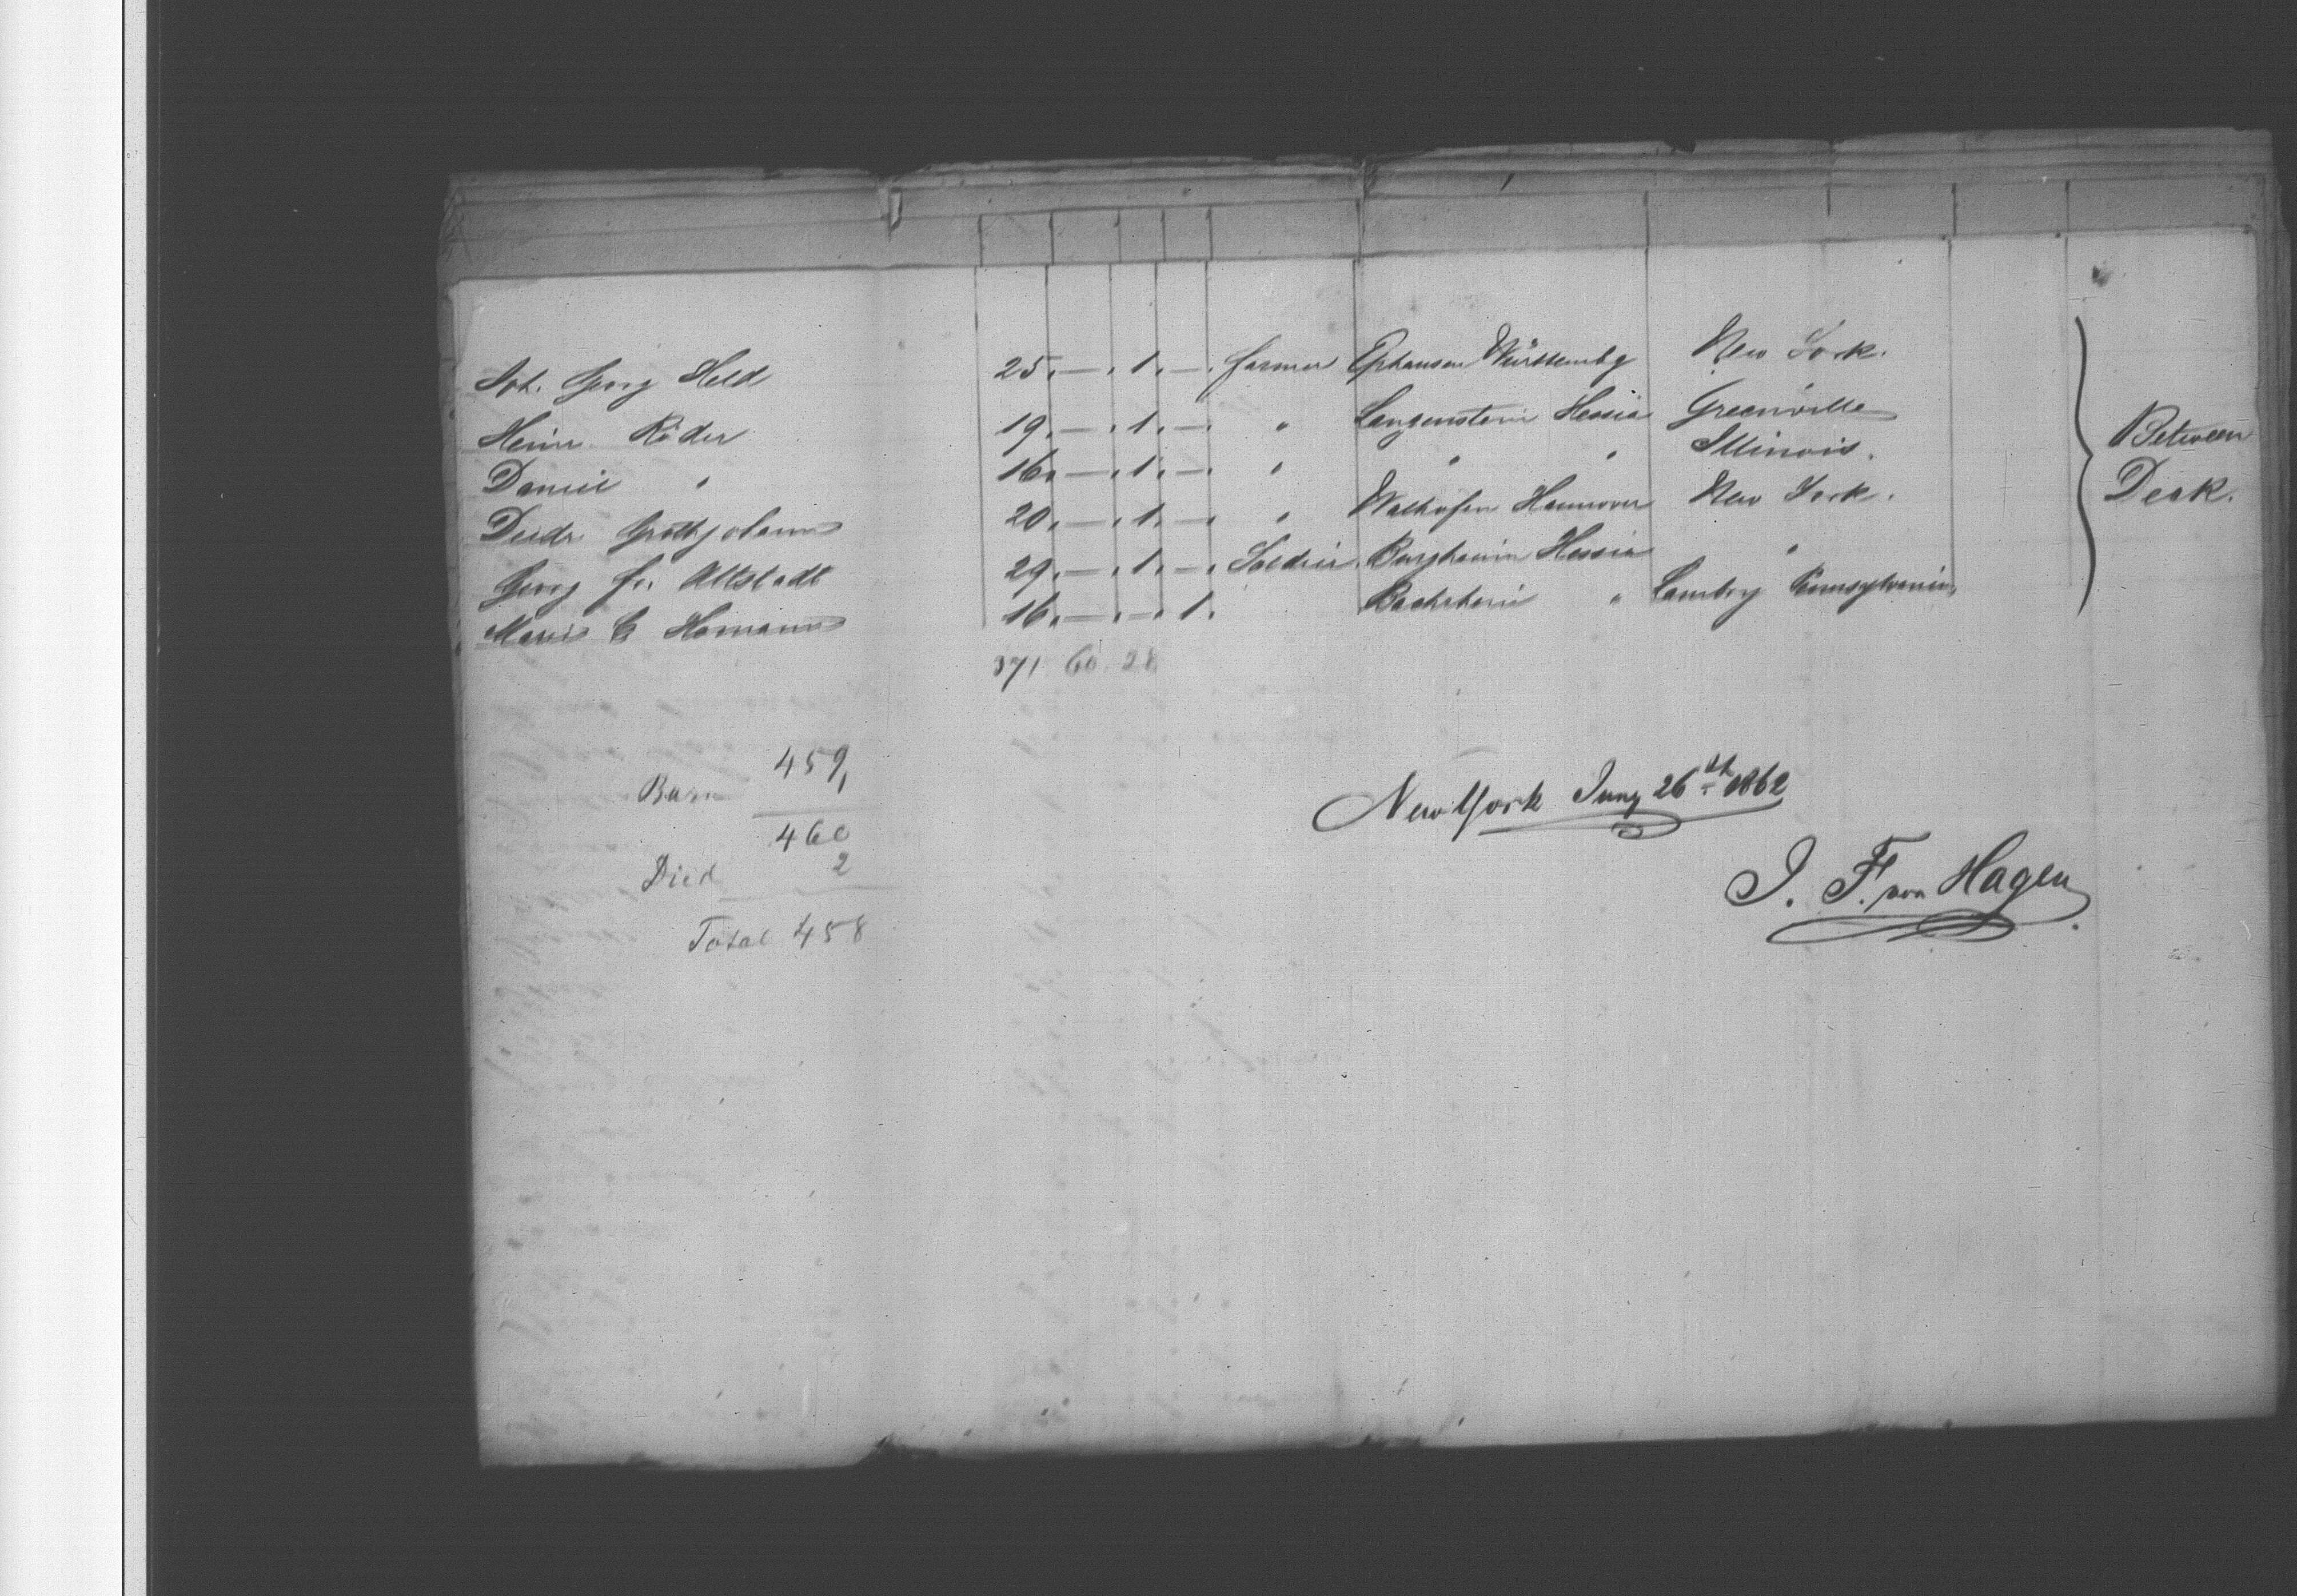 Joh. Georg Held 25. — . 1. — . farmer Ephausen Württembg New York.
Heinr. Röder 19. — . 1. — . " Langenstein Hessia Greenville
Daniel " 16. — . 1. — . " " " Illinois.
Diedr. Grothjohann 20. — . 1. — . " Walhöfen Hannover New York.
Georg Fr. Altstadt 29. — . 1. — . Soldier. Burghaun Hessia "
Marie C Homann 16. — . — 1. "  Pennsylvania
Between
Deck.
371 60. 28
459
Born 1
460
Died 2
Total 458
New York Juny 26th 1862
J. F. von Hagen.